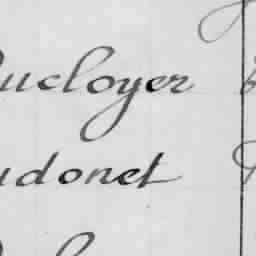 ucloyer
udonet